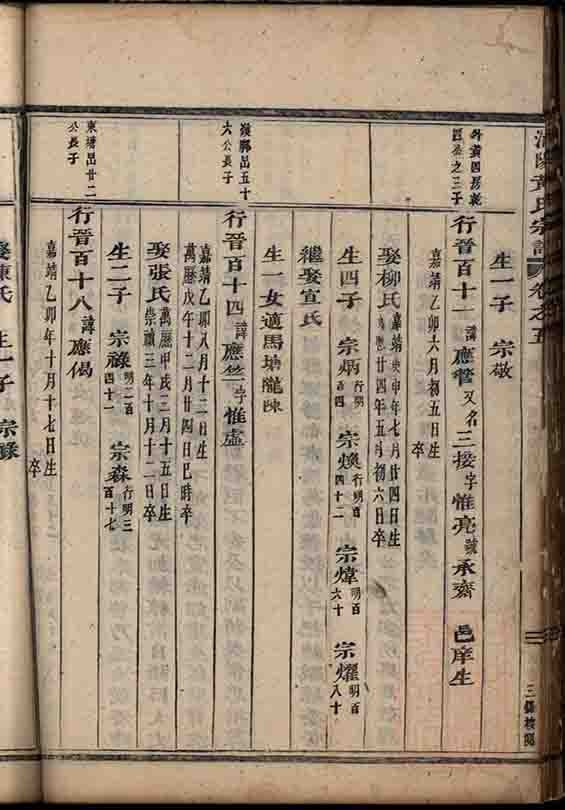 黃氏宗譜 卷之五
三畏堂
生一子 宗敬
之三子
行晉百十一 諱應管 又名三接 字惟亮 號承齋 邑庠生
嘉靖乙卯六月初五日生 卒
娶柳氏 嘉靖庚申年七月廿四日生 廿四年五月初六日卒
生四子 宗炳 行明百四 宗煥 行明百四十二 宗煒 明百六十 宗燿 明百八十
繼娶宣氏
生一女適馬塘隴陳
出五十六公長子
行晉百十四 諱應竺 字惟虛
嘉靖乙卯八月十二日生
萬曆戊午十二月廿四日巳時卒
娶張氏 萬曆甲戌三月十五日生 崇禎三年十月十二日卒
生二子 宗祿 明二百四十一 宗森 行明三百十七
東塘出廿二公長子
行晉百十八 諱應偈
嘉靖乙卯年十月十七日生 卒
娶陳氏 生一子 宗祿